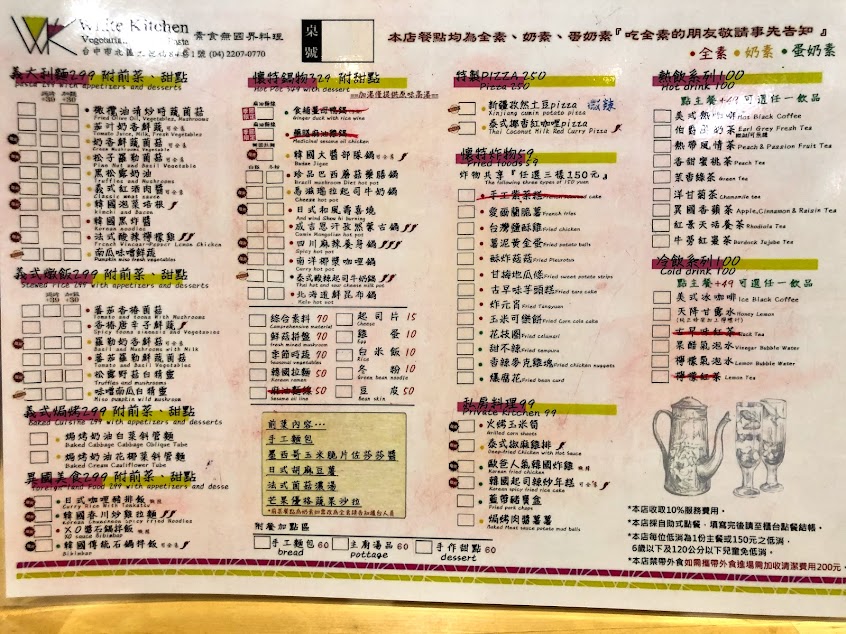 White Kitchen
素食無國界料理
(04) 2207-0770
桌號
本店餐點均為全素、奶素、蛋奶素『吃全素的朋友敬請事先告知』
●全素 ●奶素 ●蛋奶素
義大利麵299 附前菜、甜點
橄欖油清炒時蔬菌菇
Fried Olive Oil, Vegetables, Mushrooms
茄汁奶香鮮蔬
奶香鮮蔬菌菇
松子羅勒菌菇
Pine Nut and Basil Vegetable
黑松露奶油
義式紅酒肉醬
韓國泡菜培根
Kimchi and Bacon
韓國黑炸醬
Korean noodles
法式酸辣檸檬雞
南瓜味噌鮮蔬
Pumpkin miso fresh vegetables
義式燉飯299 附前菜、甜點
Stewed rice 299 with appetizers and desserts
蕃茄香椿菌菇
香椿唐辛子鮮蔬
羅勒奶香鮮菌菇
蕃茄羅勒鮮蔬菌菇
Tomato and Basil Vegetables
松露野菇白精靈
Truffles and mushrooms
味噌南瓜白精靈
Miso pumpkin wild mushroom
義式焗烤299 附前菜、甜點
Baked Cuisine 299 with appetizers and desserts
焗烤奶油白菜斜管麵
Baked Cabbage Cabbage Oblique Tube
焗烤奶油花椰菜斜管麵
Baked Cream Cauliflower Tube
異國美食299 附前菜、甜點
日式咖哩豬排飯
韓國春川炒雞拉麵
XO醬石鍋拌飯
XO sauce Bibimbap
韓國傳統石鍋拌飯
Bibimbap
懷特鍋物329 附甜點
Hot Pot 329 with dessert
=加湯僅提供原味高湯=
Ginger duck with rice wine
Medicinal sesame oil chicken
韓國大醬部隊鍋
Budae Jigae
珍品巴西蘑菇藥膳鍋
Brazil mushroom Diet hot pot
馬滋瑞拉起司牛奶鍋
Cheese hot pot
日式和風壽喜燒
成吉思汗孜然蒙古鍋
四川麻辣養身鍋
Spicy hot pot
南洋椰漿咖哩鍋
Curry hot pot
泰式酸辣起司牛奶鍋
Thai hot and sour cheese milk pot
北海道鮮昆布鍋
Kelp hot pot
綜合素料 70
Comprehensive material
鮮菇拼盤 70
fresh mixed mushroom
季節時蔬 70
seasonal vegetables
韓國拉麵 50
Korean ramen
麻油麵線 50
Sesame oil line
起司片 15
Cheese
雞蛋 10
Egg
白米飯 10
Rice
冬粉 10
Green bean noodle
豆皮 50
Bean skin
前菜內容...
手工麵包
墨西哥玉米脆片佐莎莎醬
日式胡麻豆薯
法式菌菇濃湯
芒果優格蔬果沙拉
附餐加點區
手工麵包60
bread
主廚湯品60
pottage
手作甜點60
dessert
特製PIZZA 250
Pizza 250
新疆孜然土豆pizza 微辣
Xinjiang cumin potato pizza
泰式椰香紅咖哩pizza
Thai Coconut Milk Red Curry Pizza
懷特炸物59
Fried foods 59
炸物共享『任選三樣150元』
The following three types of 150 yuan
手工紫菜糕
愛爾蘭脆薯 French fries
台灣鹽酥雞
薯泥黃金蛋 Fried potato balls
酥炸菇菇 Fried Pleurotus
甘梅地瓜條 Fried sweet potato strips
古早味芋頭糕 Fried taro cake
炸元宵 Fried Tangyuan
玉米可樂餅 Fried Corn cola cake
花枝圈
甜不辣 Fried tempura
香辣麥克雞塊
爆腐花 Fried bean curd
私房料理99
Private Kitchen 99
火烤玉米筍
Grilled corn shoots
泰式椒麻雞排
Deep-fried Chicken with Hot Sauce
歐爸人氣韓國炸雞
Korean fried chicken
韓國起司辣炒年糕
Korean spicy fried rice cake
藍帶豬寶盒
Fried pork chops
焗烤肉醬薯薯
Baked Meat sauce potato mud balls
熱飲系列100
Hot drink 100
點主餐+49可選任一飲品
美式熱咖啡 Hot Black Coffee
伯爵奶茶 Earl Grey Fresh Tea
熱帶風情茶 Peach & Passion Fruit Tea
香甜蜜桃茶 Peach Tea
茉香綠茶 Green Tea
洋甘菊茶 Chamomile tea
異國香蘋茶 Apple, Cinnamon & Raisin Tea
紅景天培養茶 Rhodiola Tea
牛蒡紅棗茶 Burdock Jujube Tea
冷飲系列100
Cold drink 100
點主餐+49可選任一飲品
美式冰咖啡 Ice Black Coffee
天降甘露水 Honey Lemon
古早味紅茶 Black Tea
果醋氣泡水 Vinegar Bubble Water
檸檬氣泡水 Lemon Bubble Water
檸檬紅茶 Lemon Tea
*本店收取10%服務費用.
*本店採自助式點餐、填寫完後請至櫃台點餐結帳.
*本店每位低消為1份主餐或150元之低消,
6歲以下及120公分以下兒童免低消.
*本店禁帶外食如需攜帶外食進場需加收清潔費用200元.